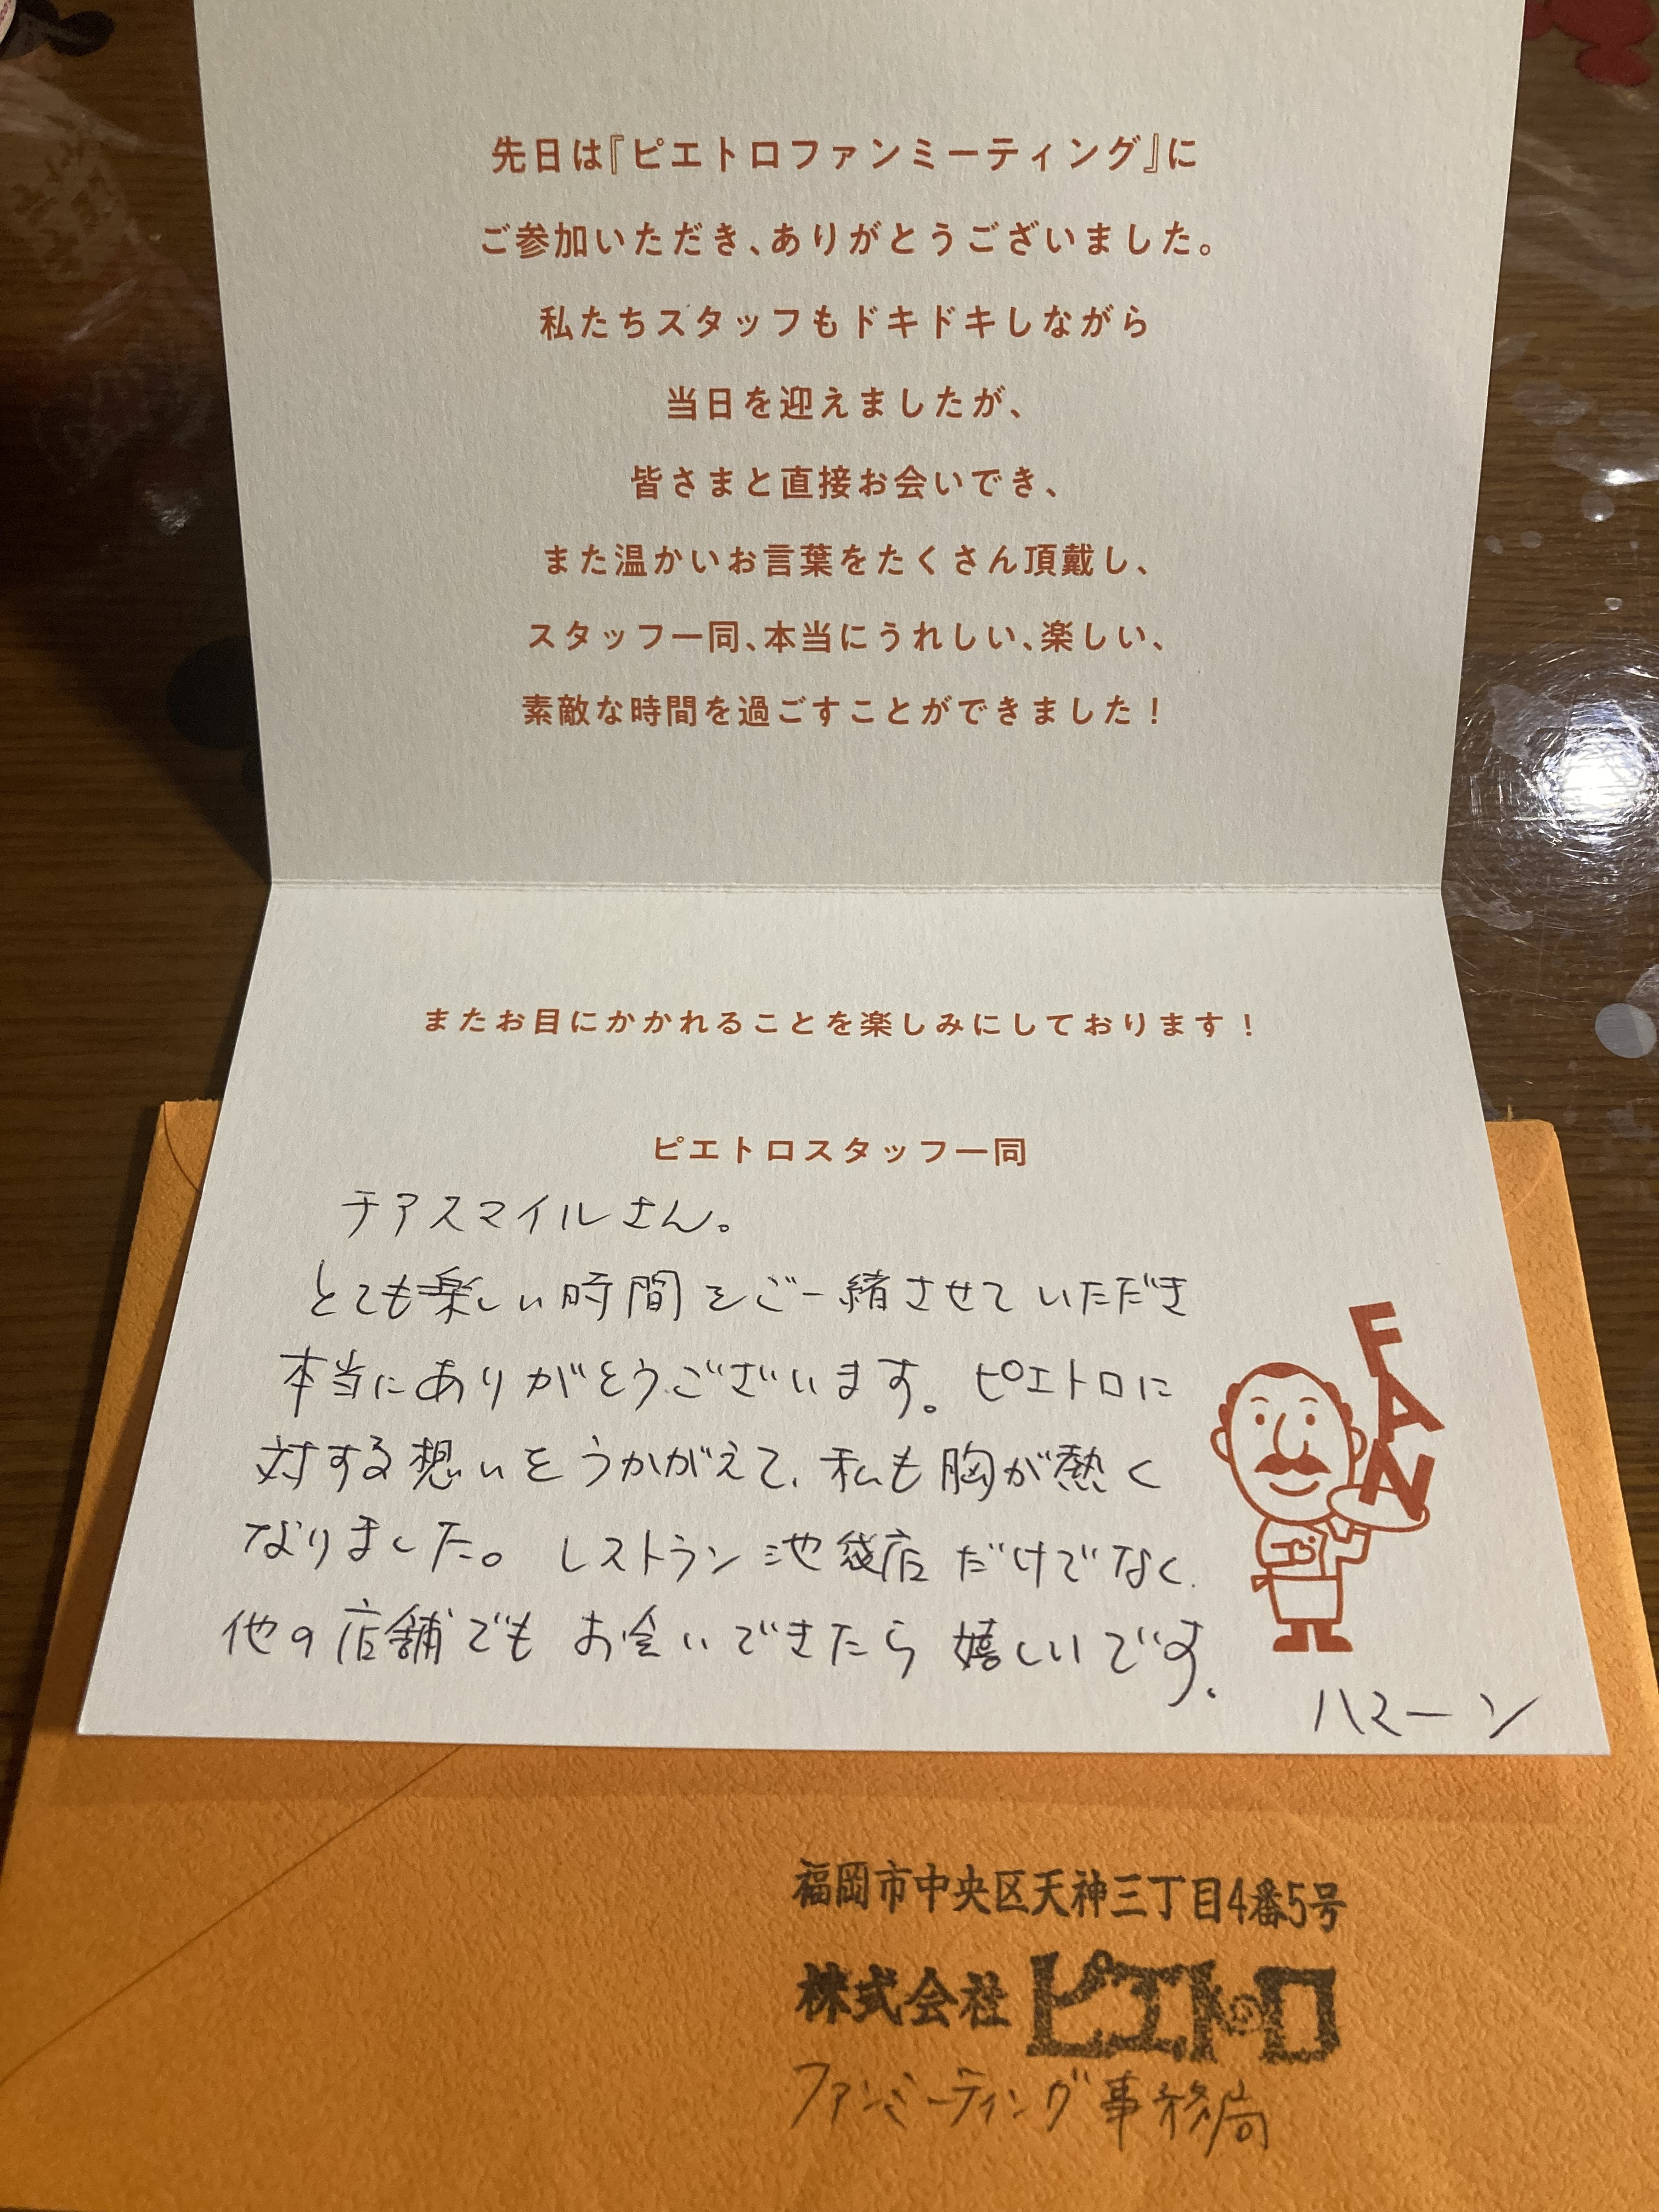 先日は『ピエトロファンミーティング』に
ご参加いただき、ありがとうございました。
私たちスタッフもドキドキしながら
当日を迎えましたが、
皆さまと直接お会いでき、
また温かいお言葉をたくさん頂戴し、
スタッフ一同、本当にうれしい、楽しい、
素敵な時間を過ごすことができました！
またお目にかかれることを楽しみにしております！
ピエトロスタッフ一同
チアスマイルさん。
とても楽しい時間をご一緒させていただき
本当にありがとうございます。ピエトロに
対する想いをうかがえて、私も胸が熱く
なりました。レストラン池袋店だけでなく、
他の店舗でもお会いできたら嬉しいです。
ハマーン
FAN
福岡市中央区天神三丁目4番5号
株式会社ピエトロ
ファンミーティング事務局